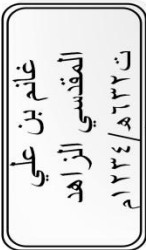 غانم بن علي
المقدسي الزاهد
ت٦٣٢هـ/١٢٣٤م